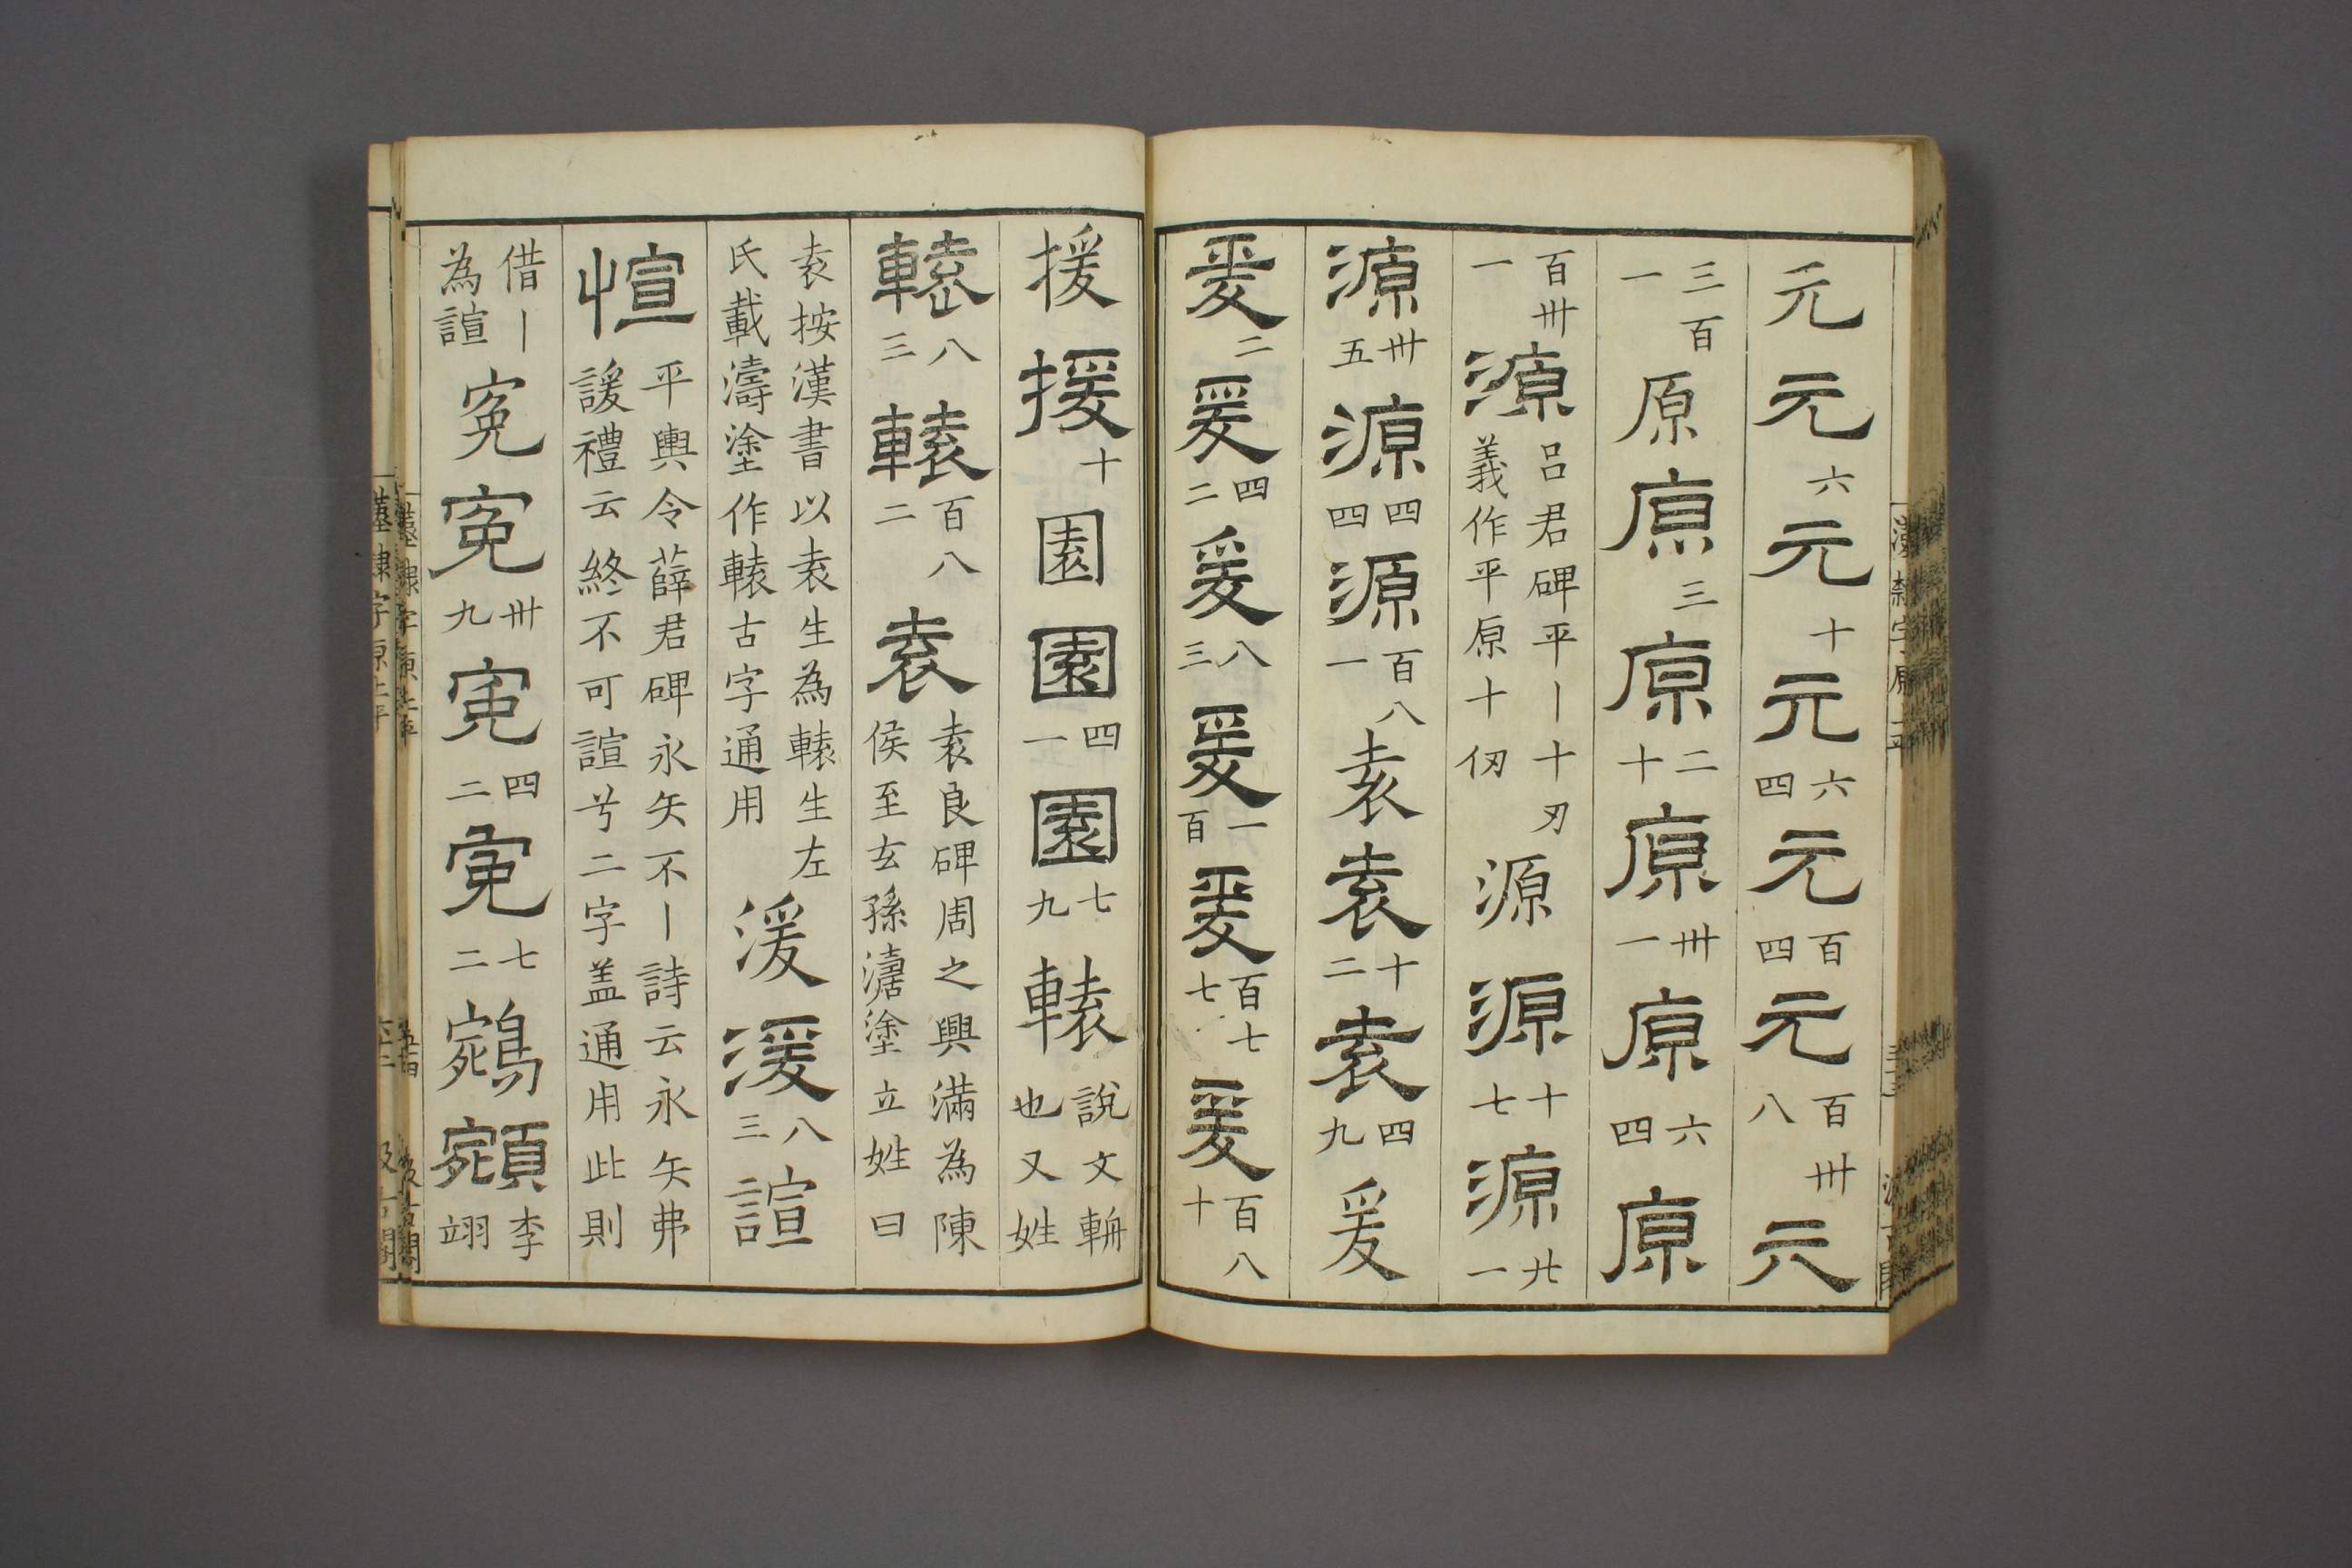 元元六元十元六四元百四元百卅八元
三百一原原三原二十原卅一原六四原
百卅一源呂君碑平丨十刃義作平原十仞源源十七源廿一
源卅五源四四源百八一袁袁十二袁四九爰
爰二爰四二爰八三爰一百爰百七七爰百八十
援援十園園四一園七九轅說文輈也又姓
轅八三轅百八二袁袁良碑周之興滿為陳侯至玄孫濤塗立姓曰
袁按漢書以袁生為轅生左氏載濤塗作轅古字通用湲湲八三諠
愃平輿令薛君碑永矢不丨詩云永矢弗諼禮云終不可諠兮二字盖通用此則
借丨為諠冤冤卅九冤四二冤七二鵷䫉李翊